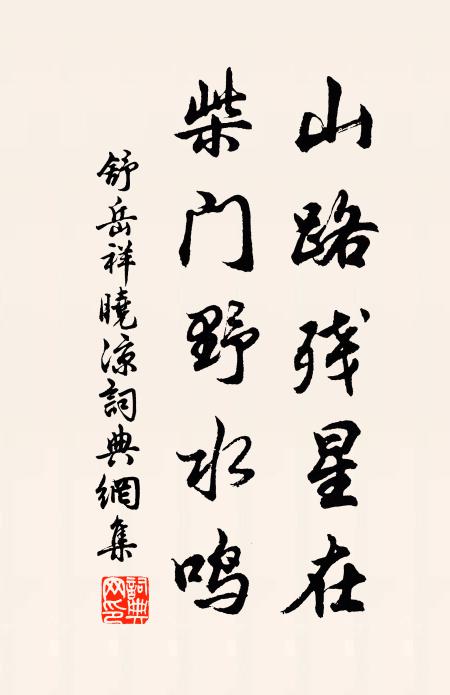 山路残星在
柴门野水鸣
舒岳祥曉凉詞典網集
詞典网印